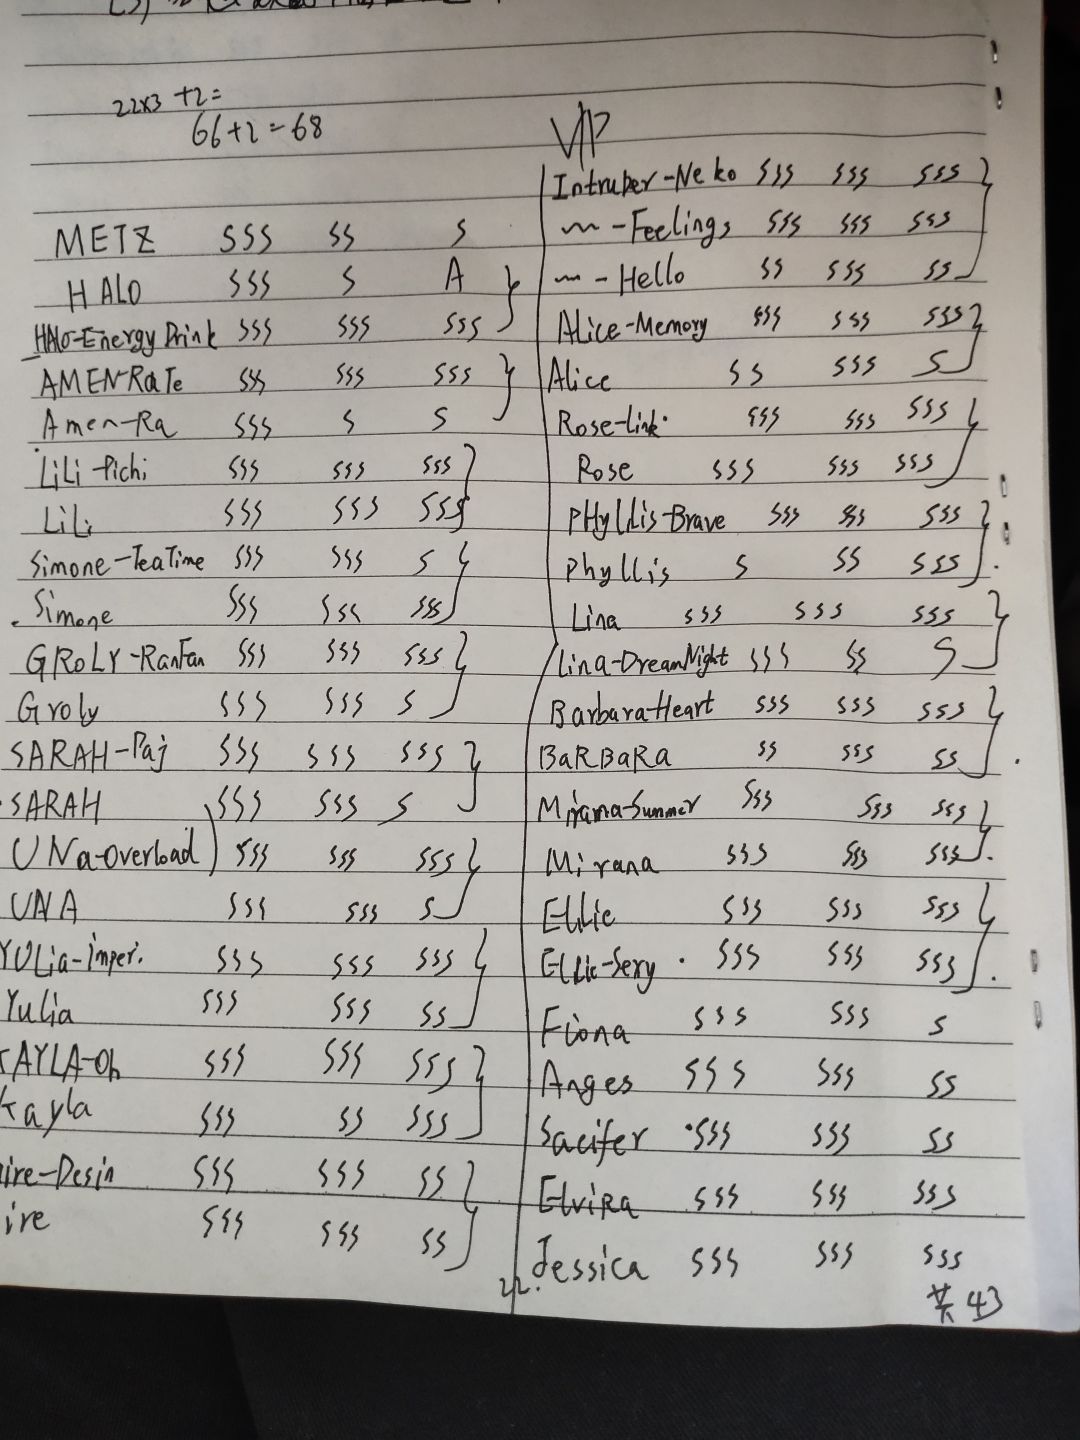 22x3 +2=
66+2=68
METZ SSS SS S
HALO SSS S A
HALO-Energy Drink SSS SSS SSS
AMEN-RaTe SSS SSS SSS
Amen-Ra SSS S S
LiLi-Pichi SSS SSS SSS
LiLi SSS SSS SSS
Simone-TeaTime SSS SSS S
Simone SSS SSS SSS
GROLY-RanFan SSS SSS SSS
Groly SSS SSS S
SARAH-Paj SSS SSS SSS
SARAH SSS SSS S
UNa-Overload SSS SSS SSS
UNA SSS SSS S
YULia-Imper. SSS SSS SSS
Yulia SSS SSS SS
KAYLA-Oh SSS SSS SSS
Kayla SSS SS SSS
ire-Desin SSS SSS SS
ire SSS SSS SS
VIP
Intruder-Neko SSS SSS SSS
~-Feelings SSS SSS SSS
~-Hello SS SSS SS
Alice-Memory SSS SSS SSS
Alice SS SSS S
Rose-Link SSS SSS SSS
Rose SSS SSS SSS
PHyllis-Brave SSS SSS SSS
Phyllis S SS SSS
Lina SSS SSS SSS
Lina-DreamNight SSS SS S
Barbara-Heart SSS SSS SSS
BaRBaRa SS SSS SS
Mirana-Summer SSS SSS SSS
Mirana SSS SSS SSS
ELLie SSS SSS SSS
ELLie-Sexy SSS SSS SSS
Fiona SSS SSS S
Anges SSS SSS SS
Sacifer SSS SSS SS
ElviRa SSS SSS SSS
22. Jessica SSS SSS SSS
共43